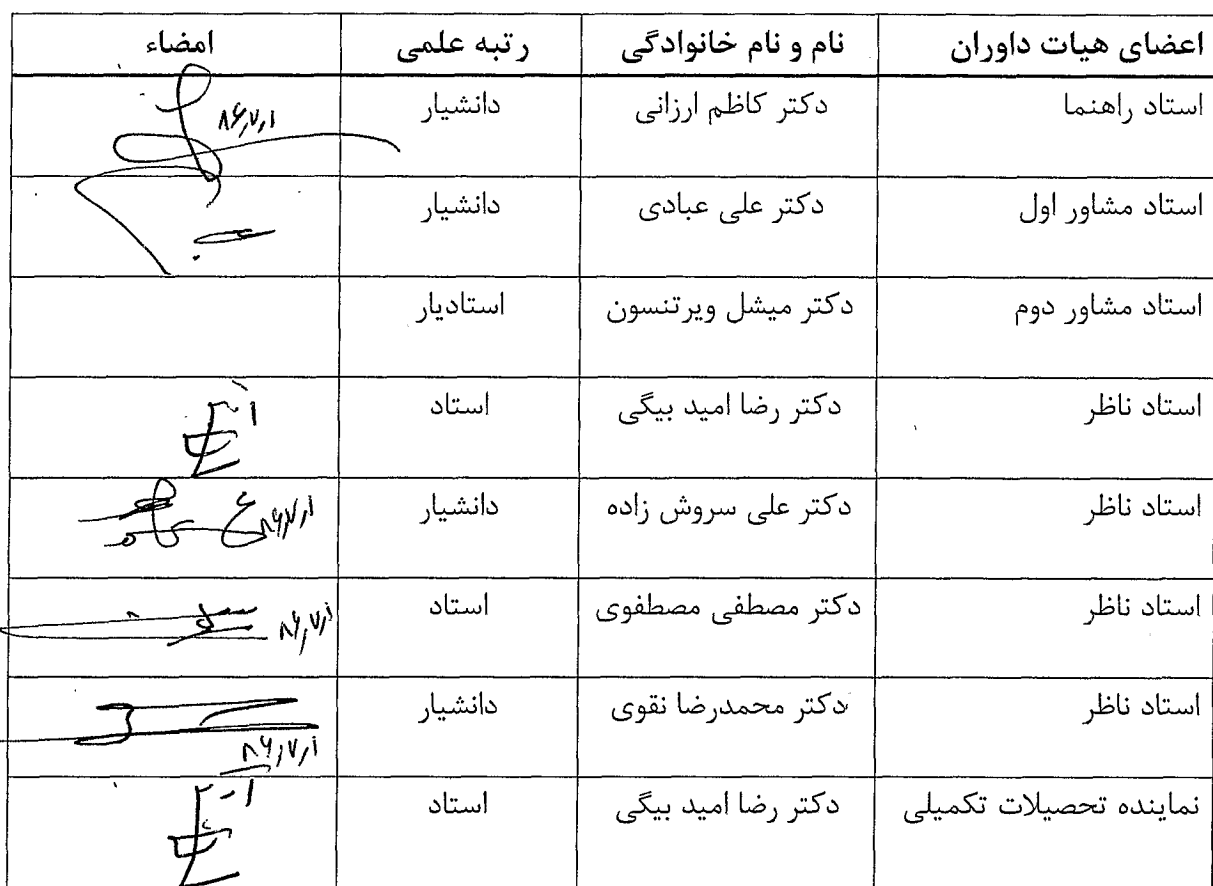 اعضای هیات داوران نام و نام خانوادگی رتبه علمی امضاء
استاد راهنما دکتر کاظم ارزانی دانشیار ۸۶,۷,۱
استاد مشاور اول دکتر علی عبادی دانشیار
استاد مشاور دوم دکتر میشل ویرتنسون استادیار
استاد ناظر دکتر رضا امید بیگی استاد
استاد ناظر دکتر علی سروش زاده دانشیار ۸۶,۷,۱
استاد ناظر دکتر مصطفی مصطفوی استاد ۸۶,۷,۱
استاد ناظر دکتر محمدرضا نقوی دانشیار ۸۶,۷,۱
نماینده تحصیلات تکمیلی دکتر رضا امید بیگی استاد